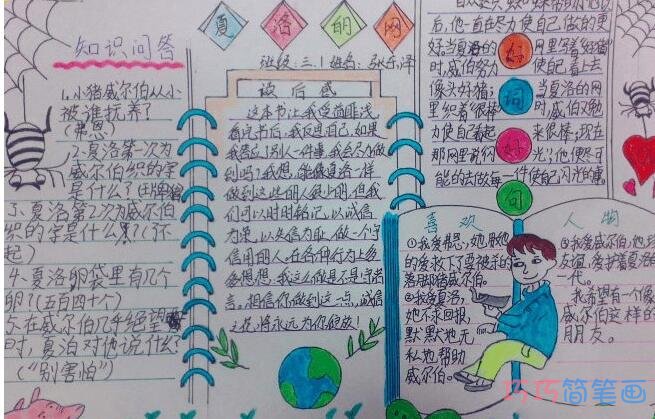 夏洛的网
班级:三.1 姓名:张乐泽
知识问答
1.小猪威尔伯从小
被谁抚养了
(弗恩)
2.夏洛第一次为
威尔伯织的字
是什么?(王牌猪
3.夏洛第2次为威尔伯
织的字是什么?(了不
起)
4.夏洛卵袋里有几个
卵?(五百四十个)
5.在威尔伯几乎绝望
时,夏洛对他说什么?
("别害怕")
读后感
这本书让我受益匪浅
看完书后,我反思自己,如果
我答应别人一件事,我会尽力做
到吗?我想,能像夏洛一样
做到这些的人很少,但我
们可以时时铭记,以诚信
为荣,以失信为耻,做一个守
信用的人,在各种行为上多
多想想,我这么做是不是守诺
言。相信你做到这一点,诚信
之花将永远为你绽放!
后,他一直在尽力使自己做的更
好当夏洛的网里写着
时,威伯努力使自己看上去
像头好猪;当夏洛的网
里织着"很棒"时,威伯又勉
力使自己看起来很棒;现在
那网里新的光?他便尽可
能的去做每一件使自己闪光的事。
好词好句
喜欢
①我爱弗恩,她用她
的爱救了要被杀的
落脚猪威尔伯。
②我爱夏洛,
她不求回报,
默默地无
私地帮助
威尔伯。
人物
③我爱威尔伯,他珍
友谊,爱护着夏洛的
一代。
我希望有一个像
威尔伯这样的
朋友。
巧巧简笔画